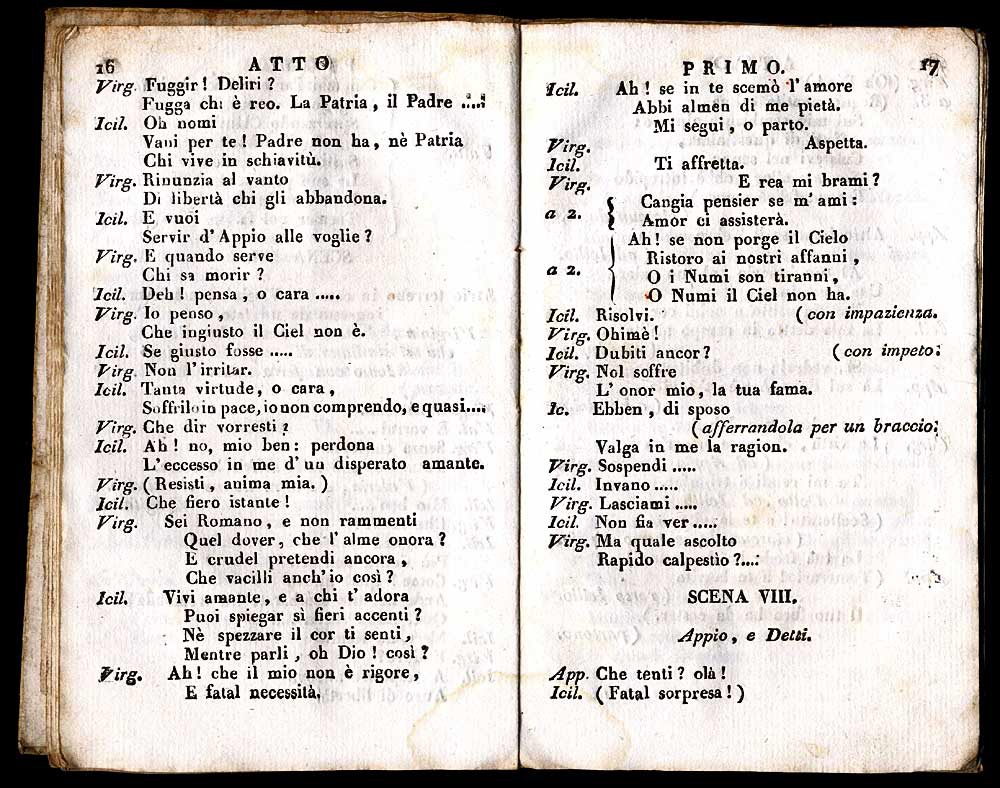 16 ATTO
Virg. Fuggir! Deliri?
Fugga chi è reo. La Patria, il Padre .....
Icil. Oh nomi
Vani per te! Padre non ha, nè Patria
Chi vive in schiavitù.
Virg. Rinunzia al vanto
Di libertà chi gli abbandona.
Icil. E vuoi
Servir d'Appio alle voglie?
Virg. E quando serve
Chi sa morir?
Icil. Deh! pensa, o cara .....
Virg. Io penso,
Che ingiusto il Ciel non è.
Icil. Se giusto fosse .....
Virg. Non l'irritar.
Icil. Tanta virtude, o cara,
Soffrilo in pace, io non comprendo, e quasi....
Virg. Che dir vorresti?
Icil. Ah! no, mio ben: perdona
L'eccesso in me d'un disperato amante.
Virg. (Resisti, anima mia.)
Icil. Che fiero istante!
Virg. Sei Romano, e non rammenti
Quel dover, che l'alme onora?
E crudel pretendi ancora,
Che vacilli anch'io così?
Icil. Vivi amante, e a chi t'adora
Puoi spiegar sì fieri accenti?
Nè spezzare il cor ti senti,
Mentre parli, oh Dio! così?
Virg. Ah! che il mio non è rigore,
E fatal necessità.
PRIMO. 17
Icil. Ah! se in te scemò l'amore
Abbi almen di me pietà.
Mi segui, o parto.
Virg. Aspetta.
Icil. Ti affretta.
Virg. E rea mi brami?
a 2. { Cangia pensier se m'ami:
Amor ci assisterà.
Ah! se non porge il Cielo
a 2. { Ristoro ai nostri affanni,
O i Numi son tiranni,
O Numi il Ciel non ha.
Icil. Risolvi. (con impazienza.
Virg. Ohimè!
Icil. Dubiti ancor? (con impeto.
Virg. Nol soffre
L'onor mio, la tua fama.
Ic. Ebben, di sposo
(afferrandola per un braccio.
Valga in me la ragion.
Virg. Sospendi .....
Icil. Invano .....
Virg. Lasciami .....
Icil. Non fia ver .....
Virg. Ma quale ascolto
Rapido calpestìo?....
SCENA VIII.
Appio, e Detti.
App. Che tenti? olà!
Icil. (Fatal sorpresa!)